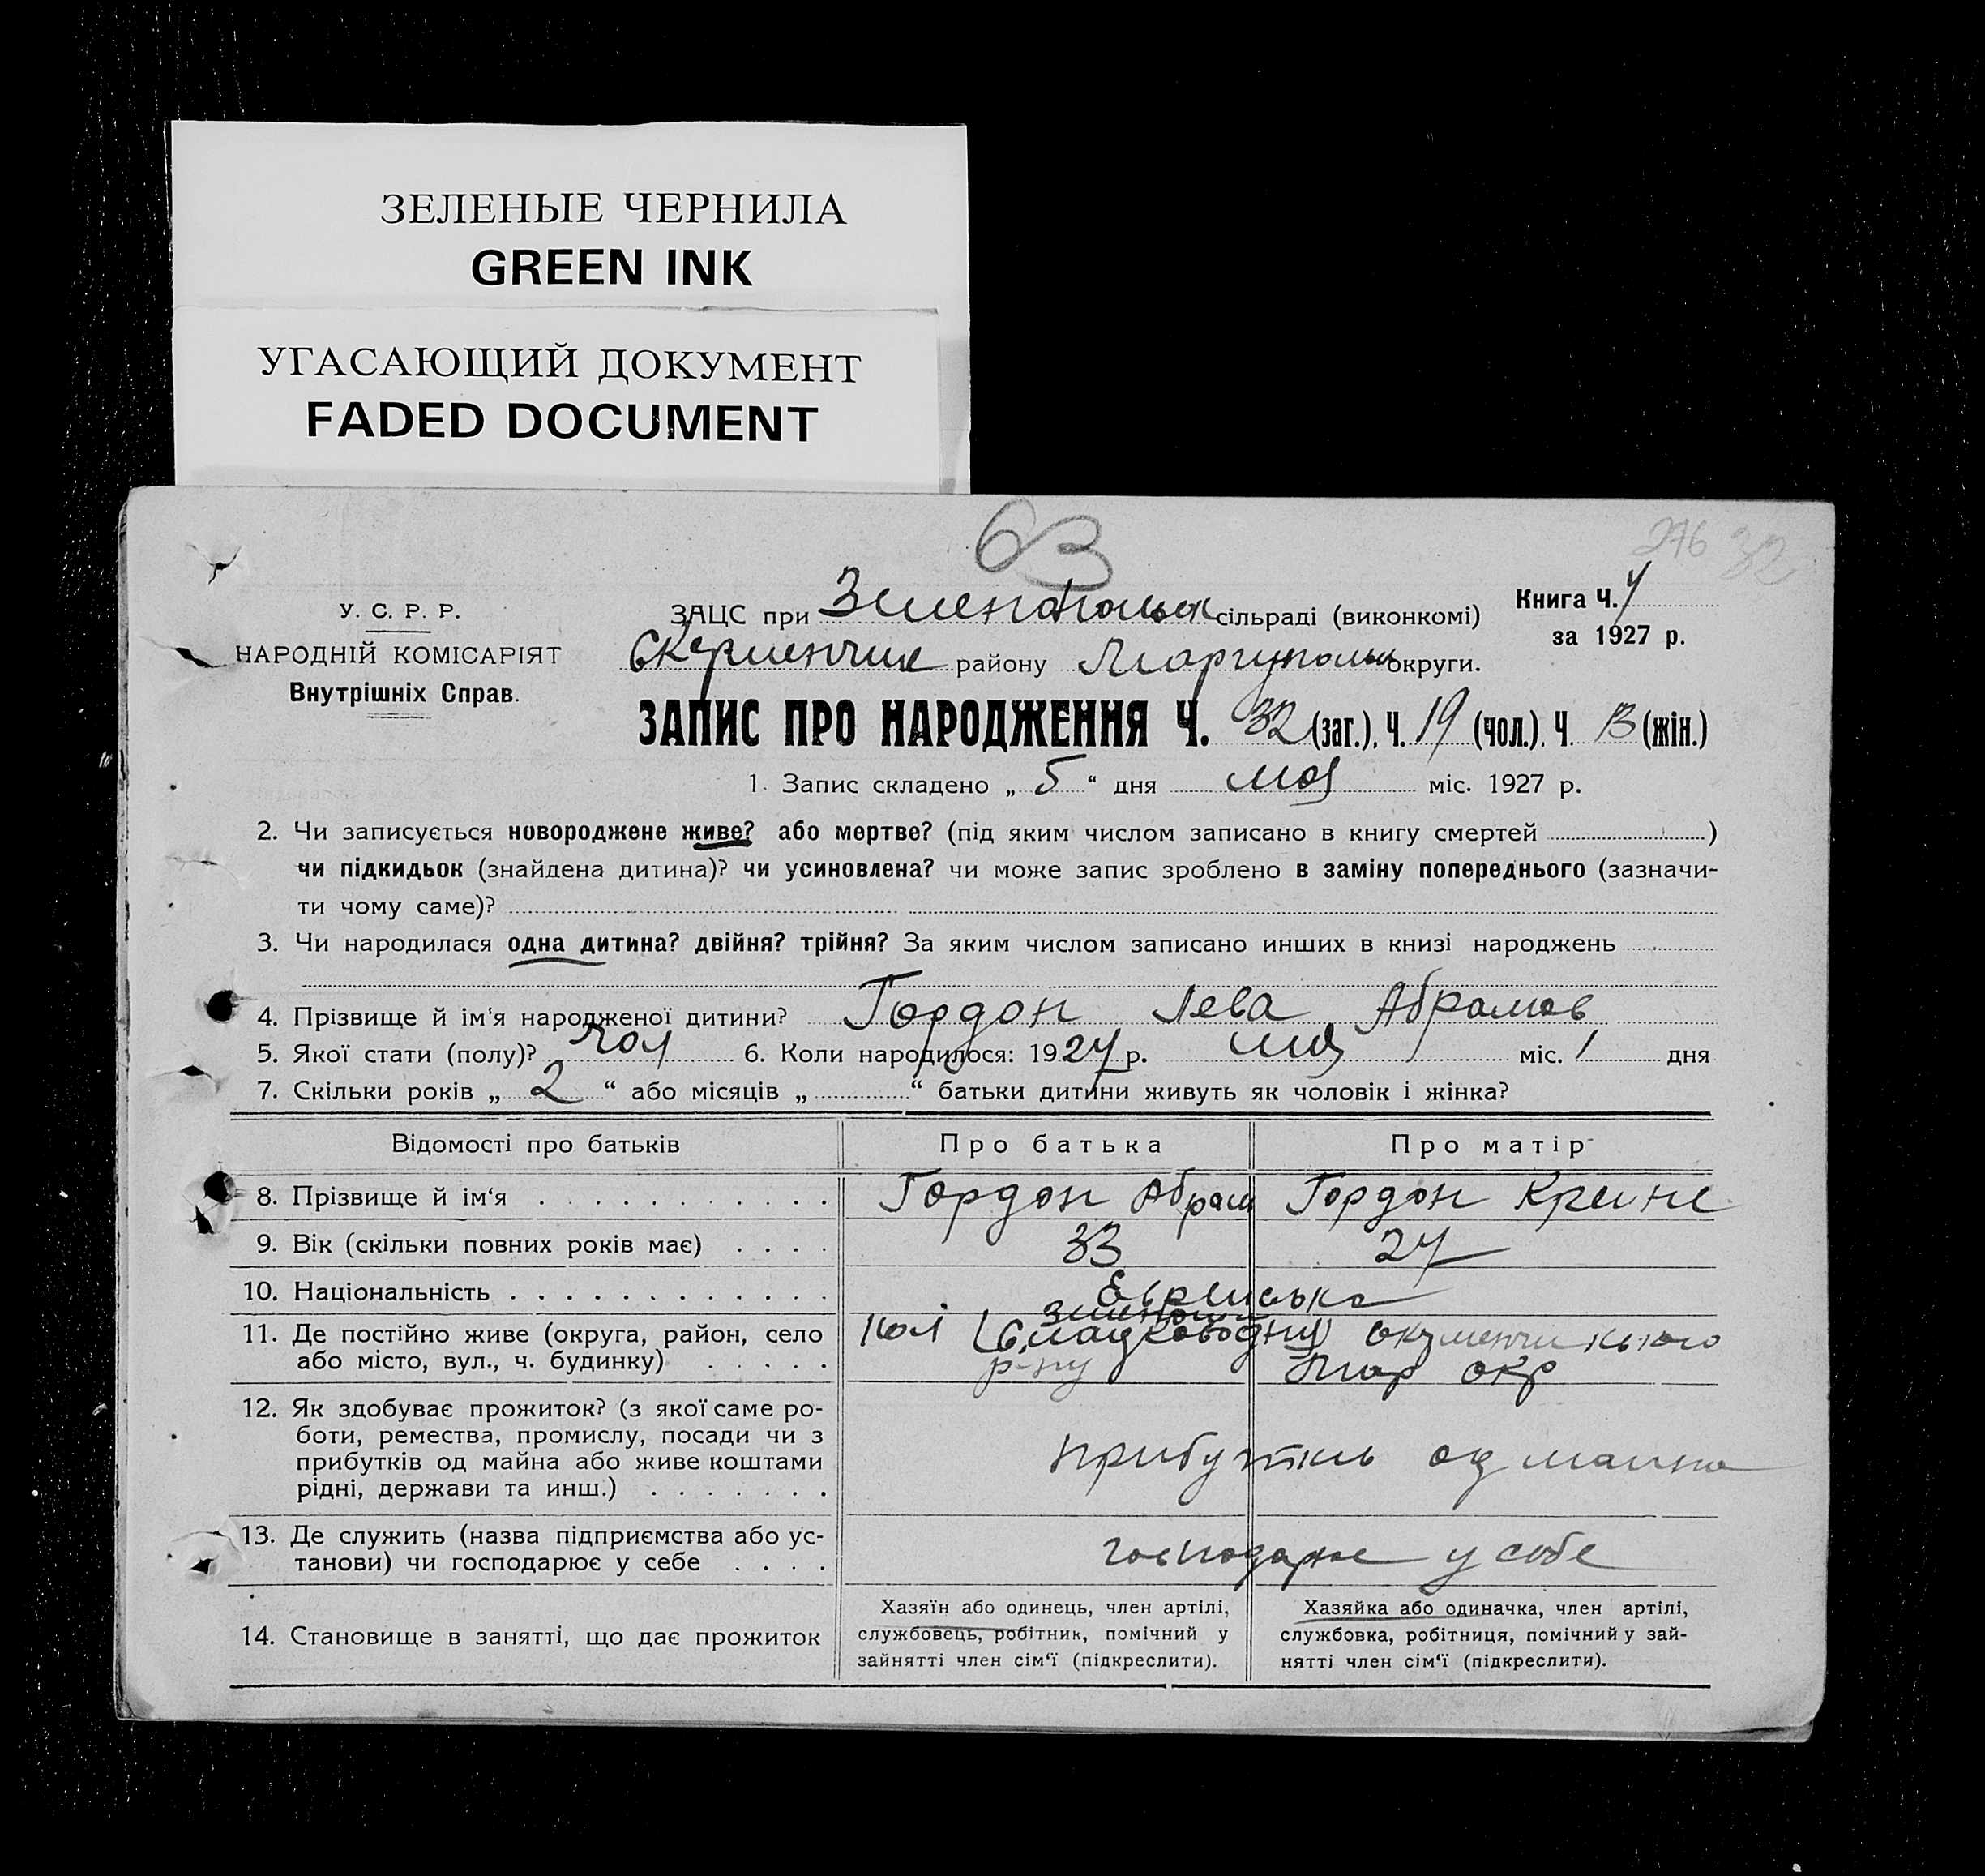 ЗЕЛЕНЫЕ ЧЕРНИЛА
GREEN INK
УГАСАЮЩИЙ ДОКУМЕНТ
FADED DOCUMENT
63
276 32
У. С. Р. Р.
НАРОДНІЙ КОМІСАРІЯТ
Внутрішніх Справ.
ЗАЦС при сільраді (виконкомі)
району округи.
Книга Ч.
за 1927 р.
ЗАПИС ПРО НАРОДЖЕННЯ Ч. 32 (заг.), Ч. 19 (чол.). Ч. 13 (жін.)
1. Запис складено „ 5 “ дня мая міс. 1927 р.
2. Чи записується новороджене живе? або мертве? (під яким числом записано в книгу смертей )
чи підкидьок (знайдена дитина)? чи усиновлена? чи може запис зроблено в заміну попереднього (зазначи-
ти чому саме)?
3. Чи народилася одна дитина? двійня? трійня? За яким числом записано инших в книзі народжень
4. Прізвище й ім'я народженої дитини? Гордон Лева Абрамов
5. Якої стати (полу)? чол 6. Коли народилося: 1927 р. мая міс. 1 дня
7. Скільки років „ 2 “ або місяців „ “ батьки дитини живуть як чоловік і жінка?
Відомості про батьків Про батька Про матір
8. Прізвище й ім‘я Гордон Абрам Гордон Крейне
9. Вік (скільки повних років має) 33 27
10. Національність Еврейська
11. Де постійно живе (округа, район, село
або місто, вул., ч. будинку)
кол
р-ну Мар окр
12. Як здобуває прожиток? (з якої саме ро-
боти, ремества, промислу, посади чи з
прибутків од майна або живе коштами
рідні, держави та инш.)
прибутків од маина
13. Де служить (назва підприємства або ус-
танови) чи господарює у себе
господарює у себе
14. Становище в занятті, що дає прожиток
Хазяїн або одинець, член артілі,
службовець, робітник, помічний у
зайнятті член сім‘ї (підкреслити).
Хазяйка або одиначка, член артілі,
службовка, робітниця, помічний у зай-
нятті член сім‘ї (підкреслити).